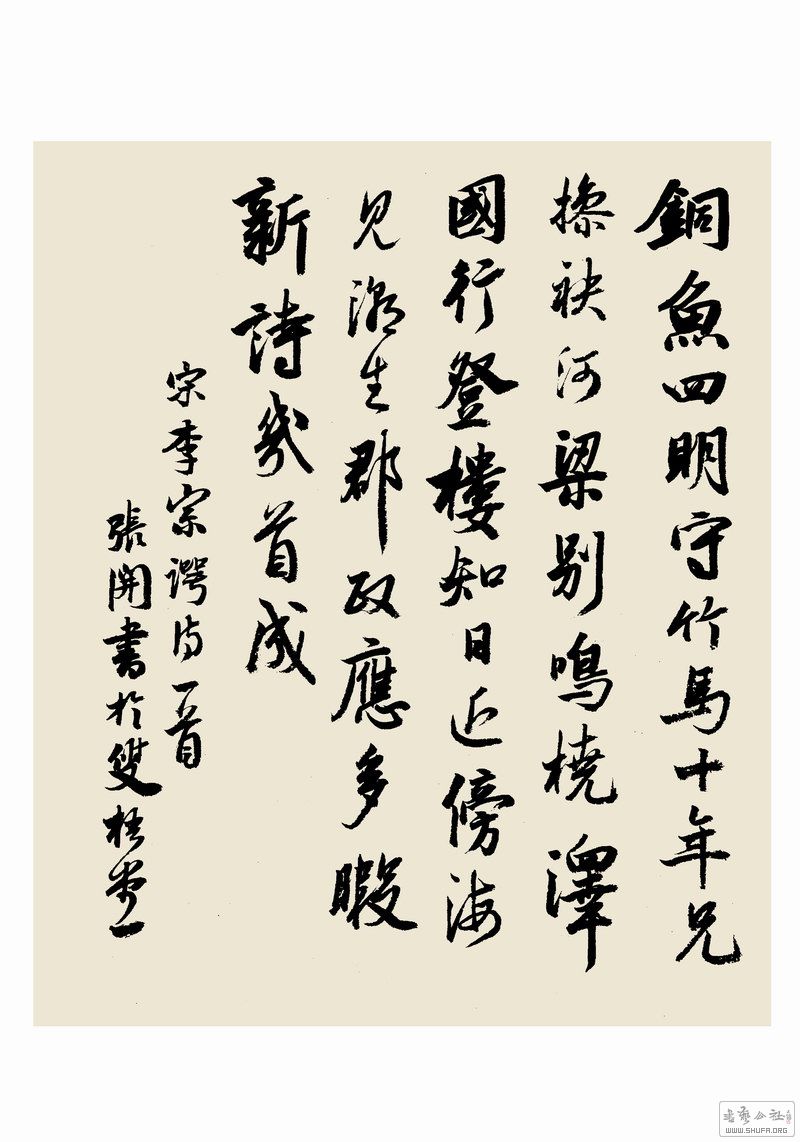 銅魚四明守竹馬十年兄
摻袂河梁别鳴橈澤
國行登樓知日近傍海
見潮生郡政應多暇
新詩幾首成
宋李宗諤詩一首
張開書於雙梧堂
書藝公社
WWW.SHUFA.ORG